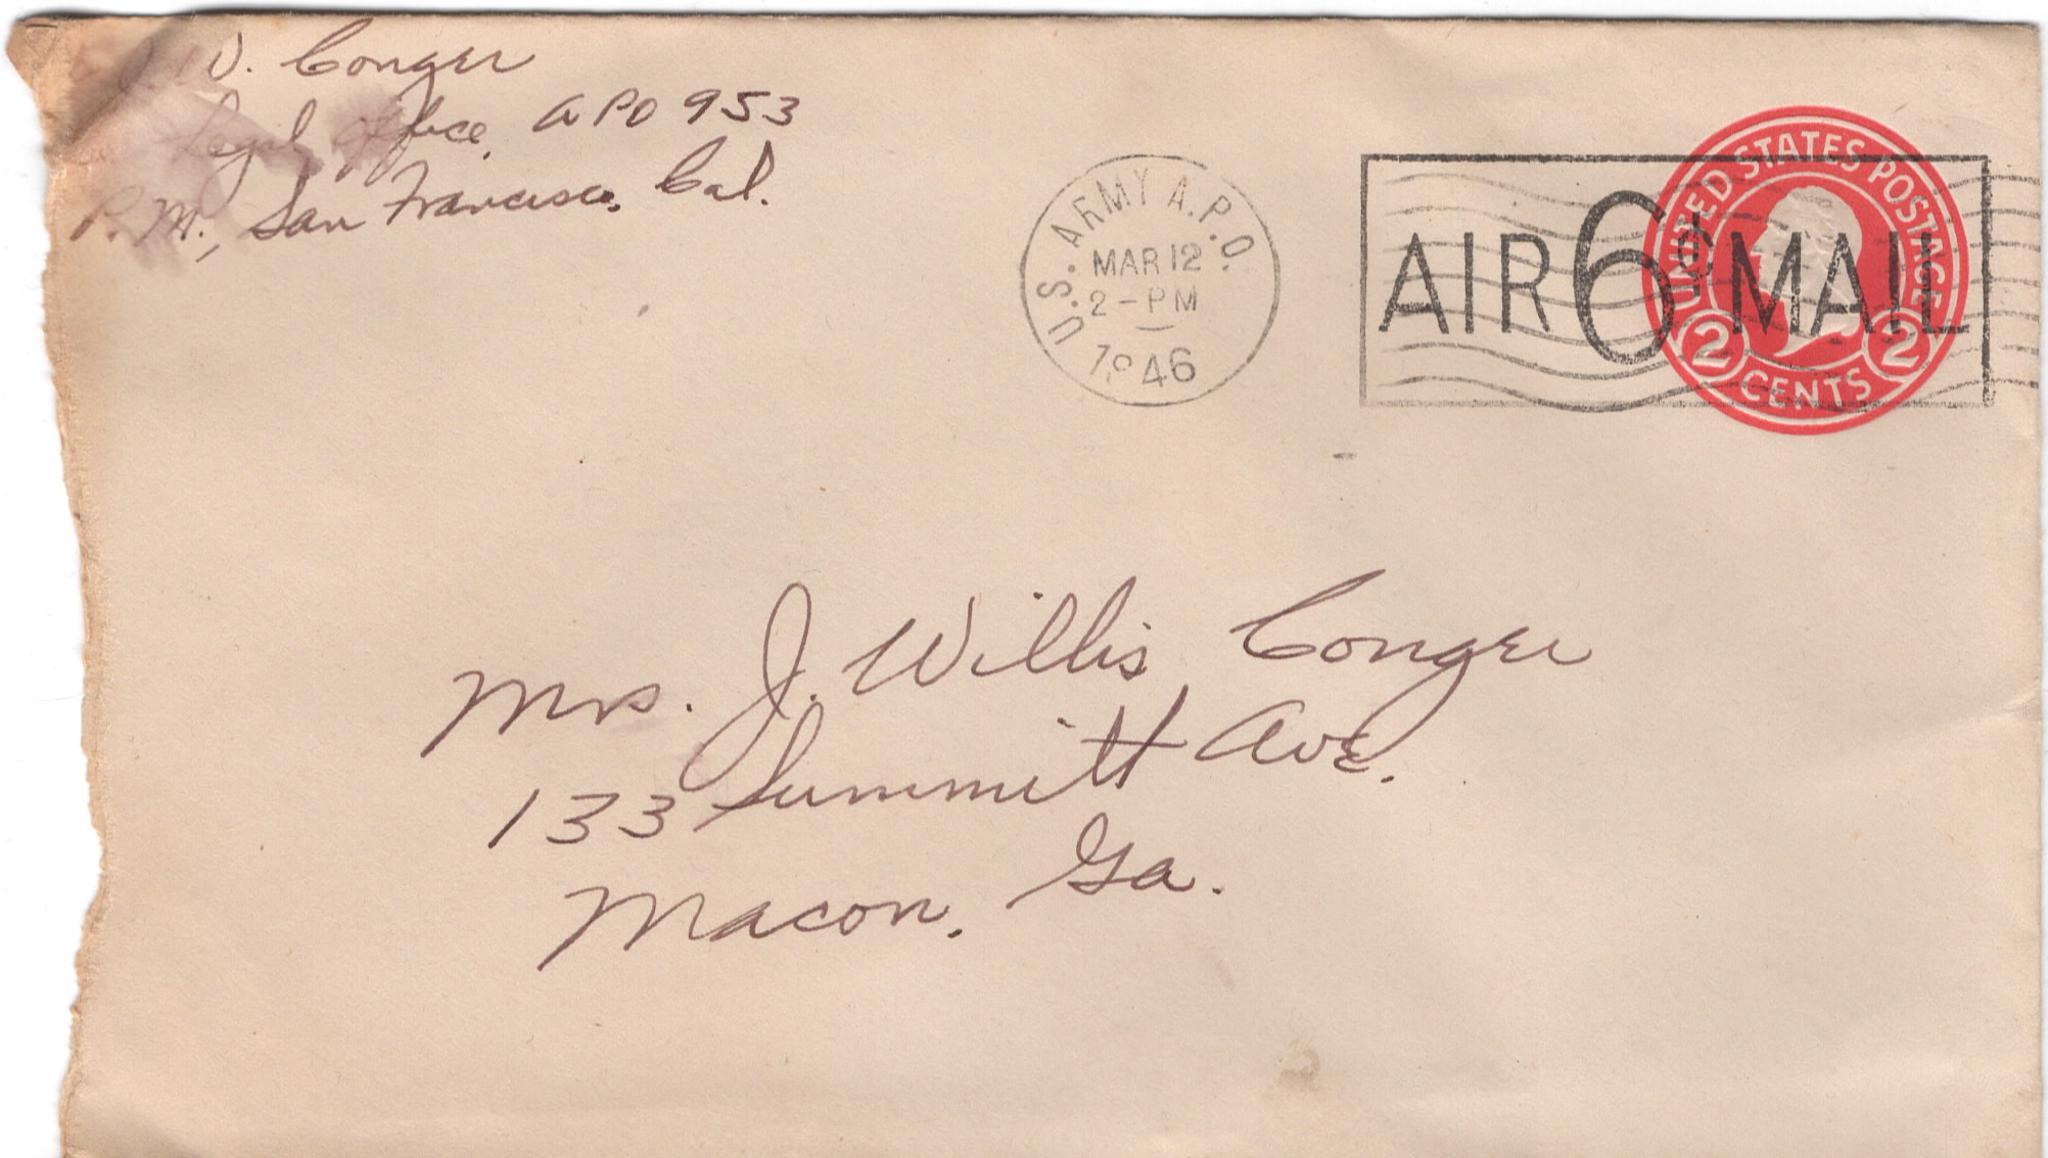 J. W. Conger
Legal Office, APO 953
P. M., San Francisco, Cal.
U.S. ARMY A.P.O.
MAR 12
2 - PM
1946
AIR 6¢ MAIL
UNITED STATES POSTAGE
2 CENTS 2
Mrs. J. Willis Conger
133 Summitt Ave.
Macon, Ga.